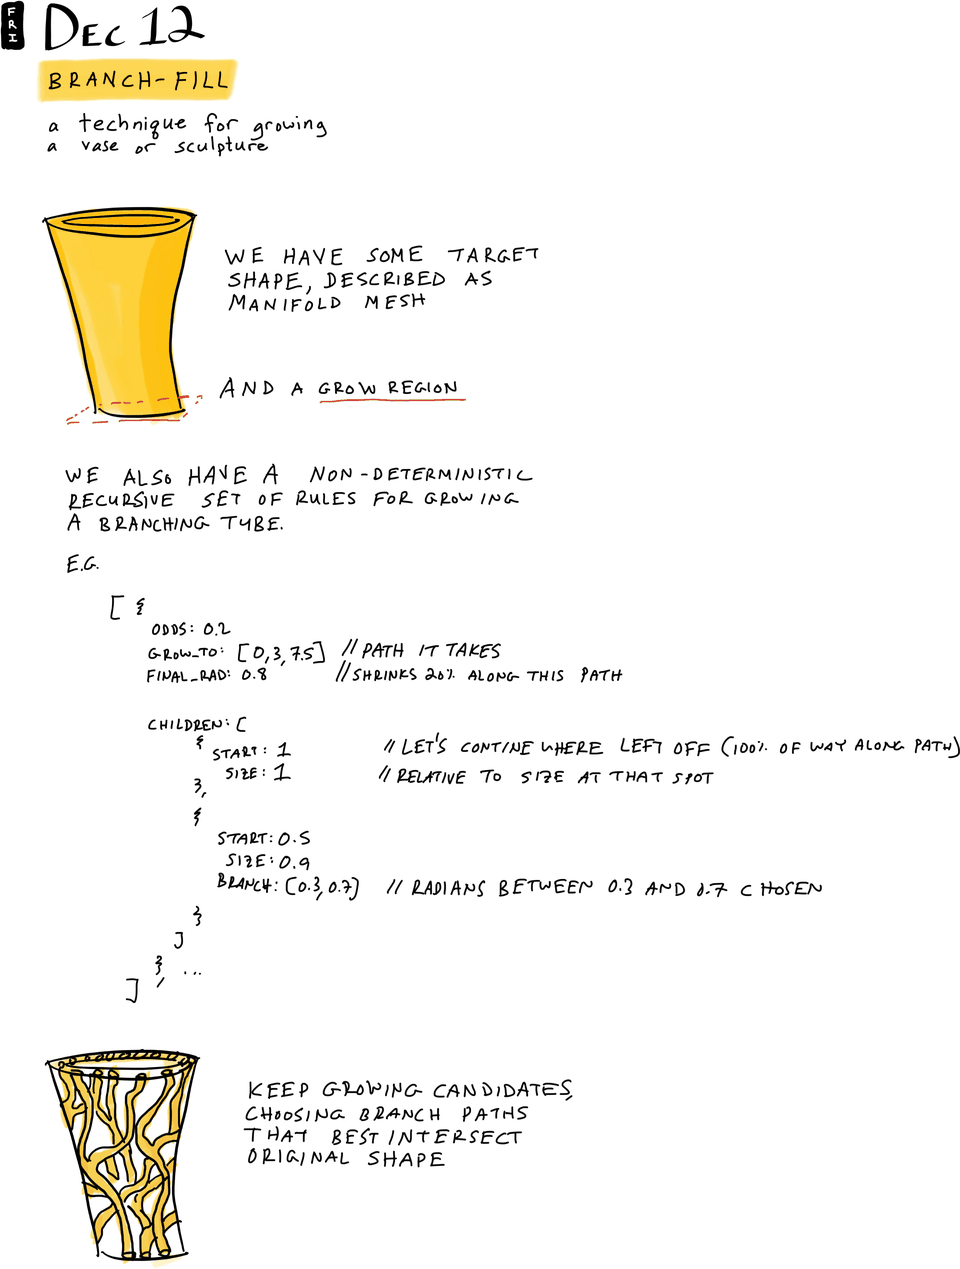 FRI
DEC 12
BRANCH-FILL
a technique for growing
a vase or sculpture
WE HAVE SOME TARGET
SHAPE, DESCRIBED AS
MANIFOLD MESH
AND A GROW REGION
WE ALSO HAVE A NON-DETERMINISTIC
RECURSIVE SET OF RULES FOR GROWING
A BRANCHING TUBE.
E.G.
[ {
ODDS: 0.2
GROW_TO: [0,3,7.5] // PATH IT TAKES
FINAL_RAD: 0.8 // SHRINKS 20% ALONG THIS PATH
CHILDREN: [
{
START: 1 // LET'S CONTINE WHERE LEFT OFF (100% OF WAY ALONG PATH)
SIZE: 1 // RELATIVE TO SIZE AT THAT SPOT
},
{
START: 0.5
SIZE: 0.9
BRANCH: [0.3, 0.7] // RADIANS BETWEEN 0.3 AND 0.7 CHOSEN
}
]
}, ...
]
KEEP GROWING CANDIDATES,
CHOOSING BRANCH PATHS
THAT BEST INTERSECT
ORIGINAL SHAPE